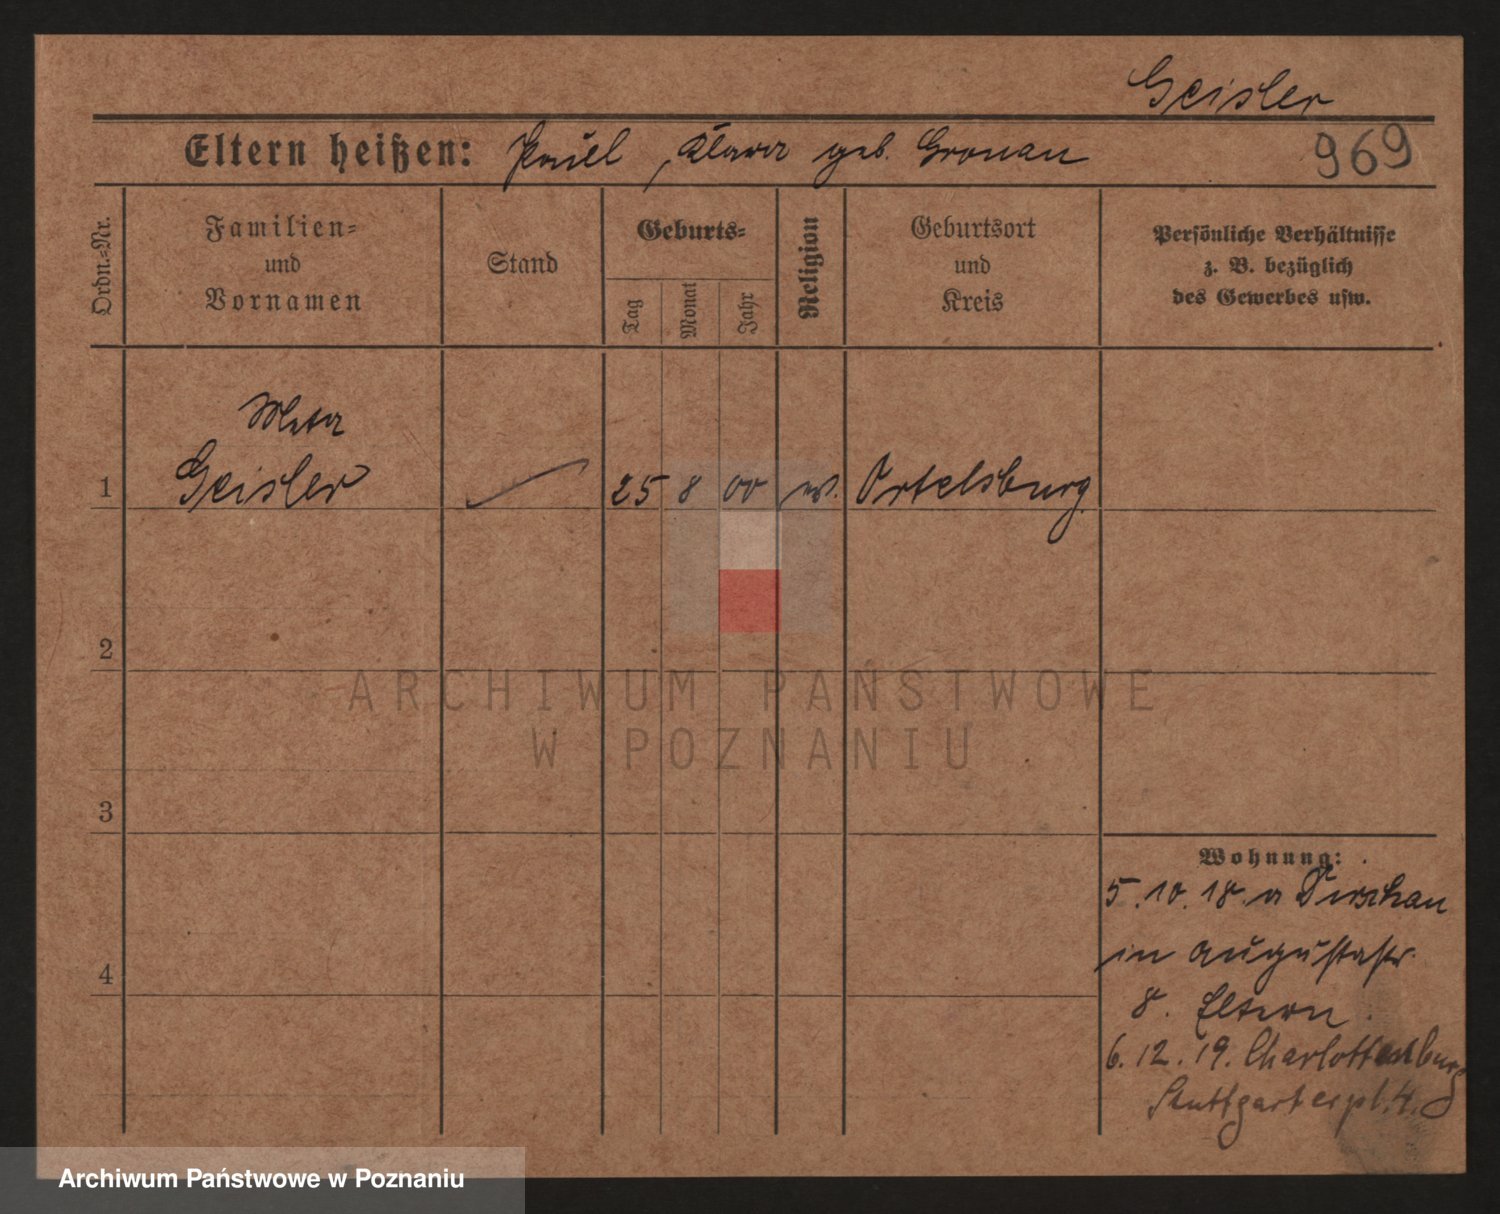 Geisler
Eltern heißen: Paul, Klara geb. Gronau
969
Ordn.=Nr.
Familien=
und
Vornamen
Stand
Geburts=
Tag
Monat
Jahr
Religion
Geburtsort
und
Kreis
Persönliche Verhältnisse
z. B. bezüglich
des Gewerbes usw.
Meta
1 Geisler 25 8 00 ev. Ortelsburg
2
ARCHIWUM PAŃSTWOWE
W POZNANIU
3
Wohnung:
5.10.18. a Dirschau
in Augustastr.
4
8. Eltern.
6.12.19. Charlottenburg
Stuttgarterpl. 4.
Archiwum Państwowe w Poznaniu